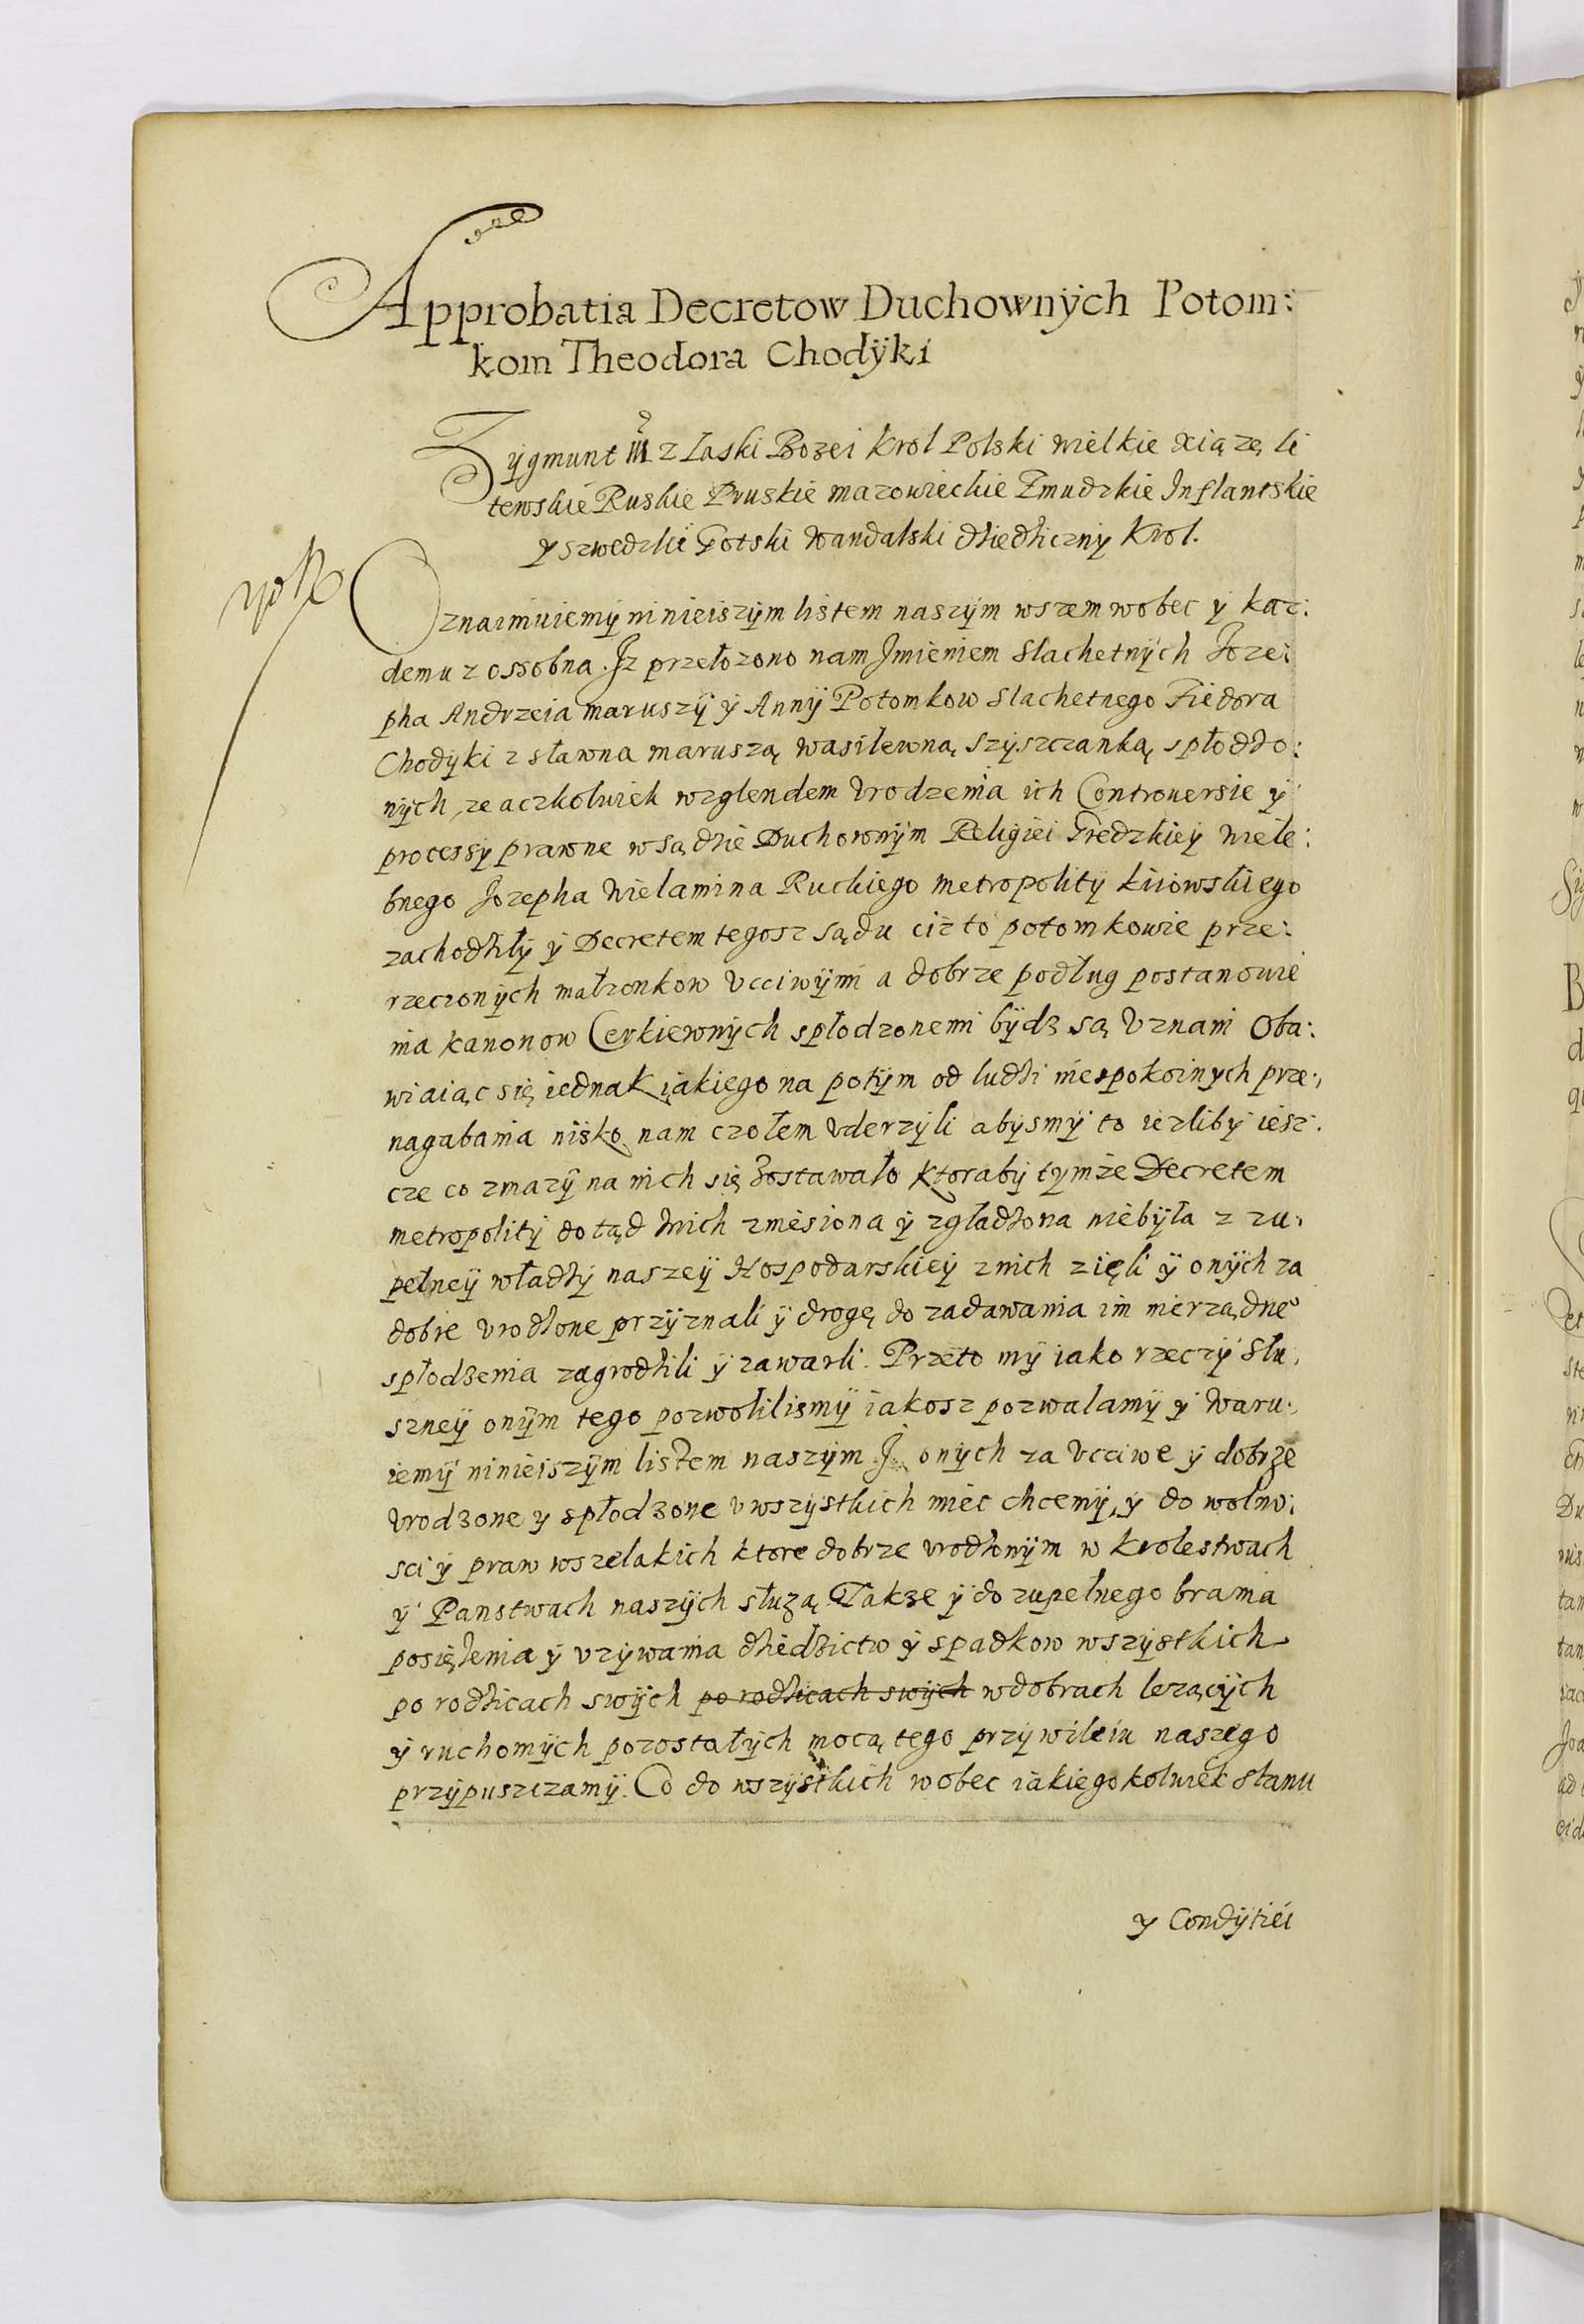 Approbatia Decretow Duchownÿch Potom:
kom Theodora Chodÿki
Zÿgmunt III z Łaski Bozei Krol Polski wielkie xiązę li
tewskie Ruskie Pruskie mazowieckie Zmudzkie Inflantskie
y szwedzki Gotski Wandalski dziedziczny Krol.
Oznaimuiemÿ ninieiszÿm listem naszÿm wszem wobec ÿ kaz:
demu z ossobna. Jz przełozono nam Jmieniem Slachetnÿch Joze:
pha Andrzeia maruszÿ ÿ Annÿ Potomkow Slachetnego Fiedora
Chodÿki z sławna maruszą wasilewną szÿszczanką spłodzo:
nÿch, ze aczkolwiek wzglendem Vrodzenia ich Controuersie ÿ
processÿ prawne w sądzie Duchownÿm Religiei Gredzkieÿ wiele:
bnego Jozepha Wielamina Ruckiego metropolitÿ kiiowskiego
zachodziłÿ ÿ Decretem tegosz sądu ciz to potomkowie prze:
rzeczonÿch małzonkow Vcciwÿmi a dobrze podług postanowie
nia kanonow Cerkiewnÿch spłodzonemi bÿdz są Vznani Oba:
wiaiąc się iednak iąkiego na potÿm od ludzi niespokoinych prze:
nagabania nisko nam czołem Vderzÿli abÿsmÿ to iezlibÿ iesz:
cze co zmazÿ na nich się zostawało ktorabÿ tÿmze Decretem
metropolitÿ do tąd Wnich zniesiona ÿ zgładzona niebÿła z zu:
pełneÿ władzÿ naszeÿ Hospodarskieÿ znich zięli ÿ onÿch za
dobre vrodzone przÿznali ÿ drogę do zadawania im nierządne
spłodzenia zagrodzili ÿ zawarli. Przeto mÿ iako rzeczÿ Słu,
szneÿ onÿm tego pozwolilismÿ iakosz pozwalamÿ ÿ Waru:
iemÿ ninieiszÿm listem naszÿm J onÿch za Vcciwe ÿ dobrze
Vrodzone y spłodzone v wszÿstkich miec chcemÿ, ÿ do wolno:
sci ÿ praw wszelakich ktore dobrze vrodzonÿm w krolestwach
ÿ Panstwach naszÿch słuzą. Takze ÿ do zupełnego brania
posiędzenia ÿ vzÿwania dziedzictw ÿ spadkow wszÿstkich
po rodzicach swÿch po rodzicach swÿch w dobrach lezącÿch
ÿ ruchomÿch pozostałÿch mocą tego przÿwileiu naszego
przÿpuszczamÿ. Co do wszÿstkich wobec iakiegokolwiek stanu
y Condÿtiei